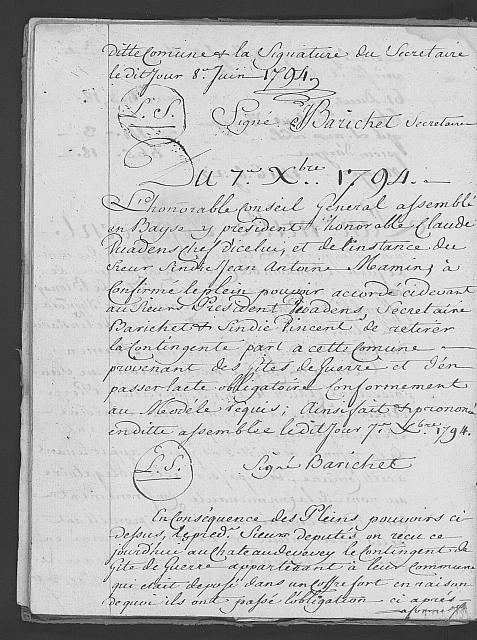 ditte Comune & la Signature du Secretaire
ledit Jour 8e Juin 1794
L. S. Signé Barichet Secretaire
Du 7e Xbre 1794.
L'honorable Conseil General assemblé
en Bays y president l'honorable Claude
Chef d'icelui, et de l'instance du
Sieur Sindic Jean Antoine Mamin; à
Confirmé le plein pouvoir accordé cidevant
au Sieurs President Secretaire
Barichet & Sindic Pincent de retirer
la Contingente part a cette Comune
provenant des gites de Guerre et d'en
passer l'acte obligatoire Conformement
au Modéle requis; Ainsi fait & prononcé
en ditte assemblée ledit Jour 7e Xbre 1794.
L. S. Signé Barichet
En Conséquence des Pleins pouvoirs ci
dessus, les pred. Sieurs deputés on recu ce
jourdhui au Chateau devevey le Contingent de
Gite de Guerre appartenant à leur Commune
qui était deposé dans un Coffre fort en raison
de quoi ils ont passé l'obligation ci après